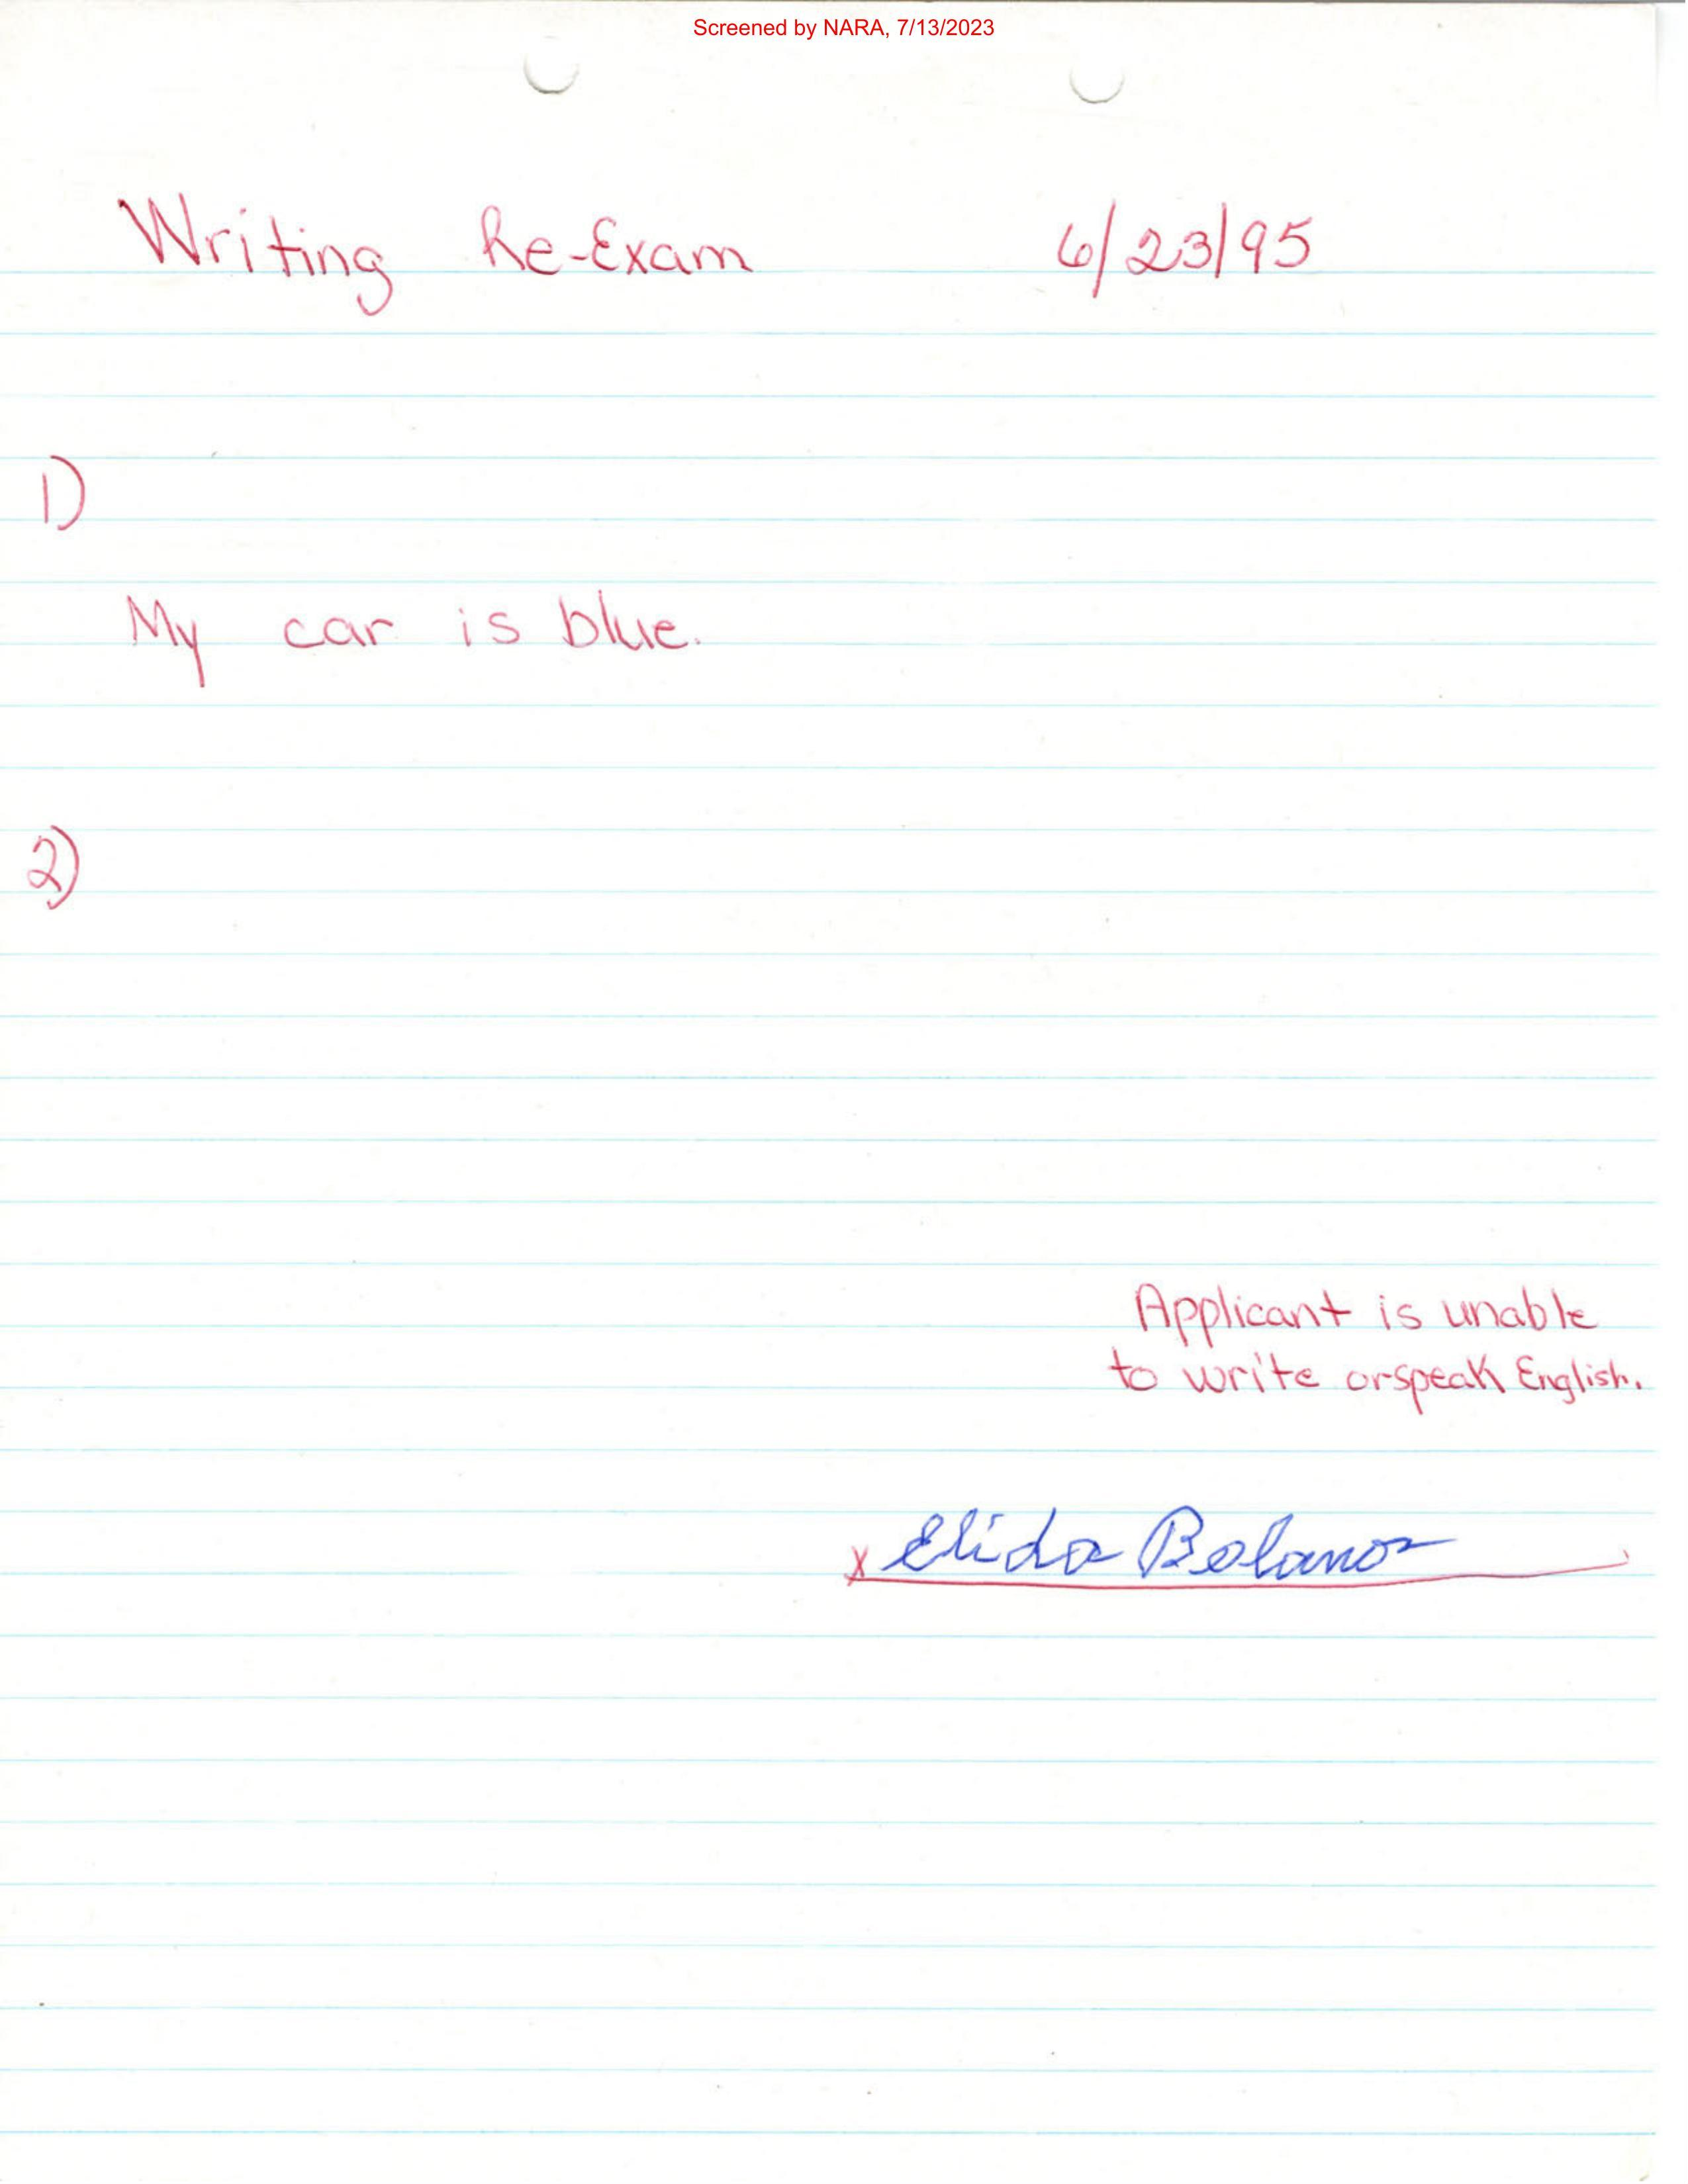 Screened by NARA, 7/13/2023
Writing Re-Exam 6/23/95
1)
My car is blue.
2)
Applicant is unable
to write or speak English.
x Elida Bolanos